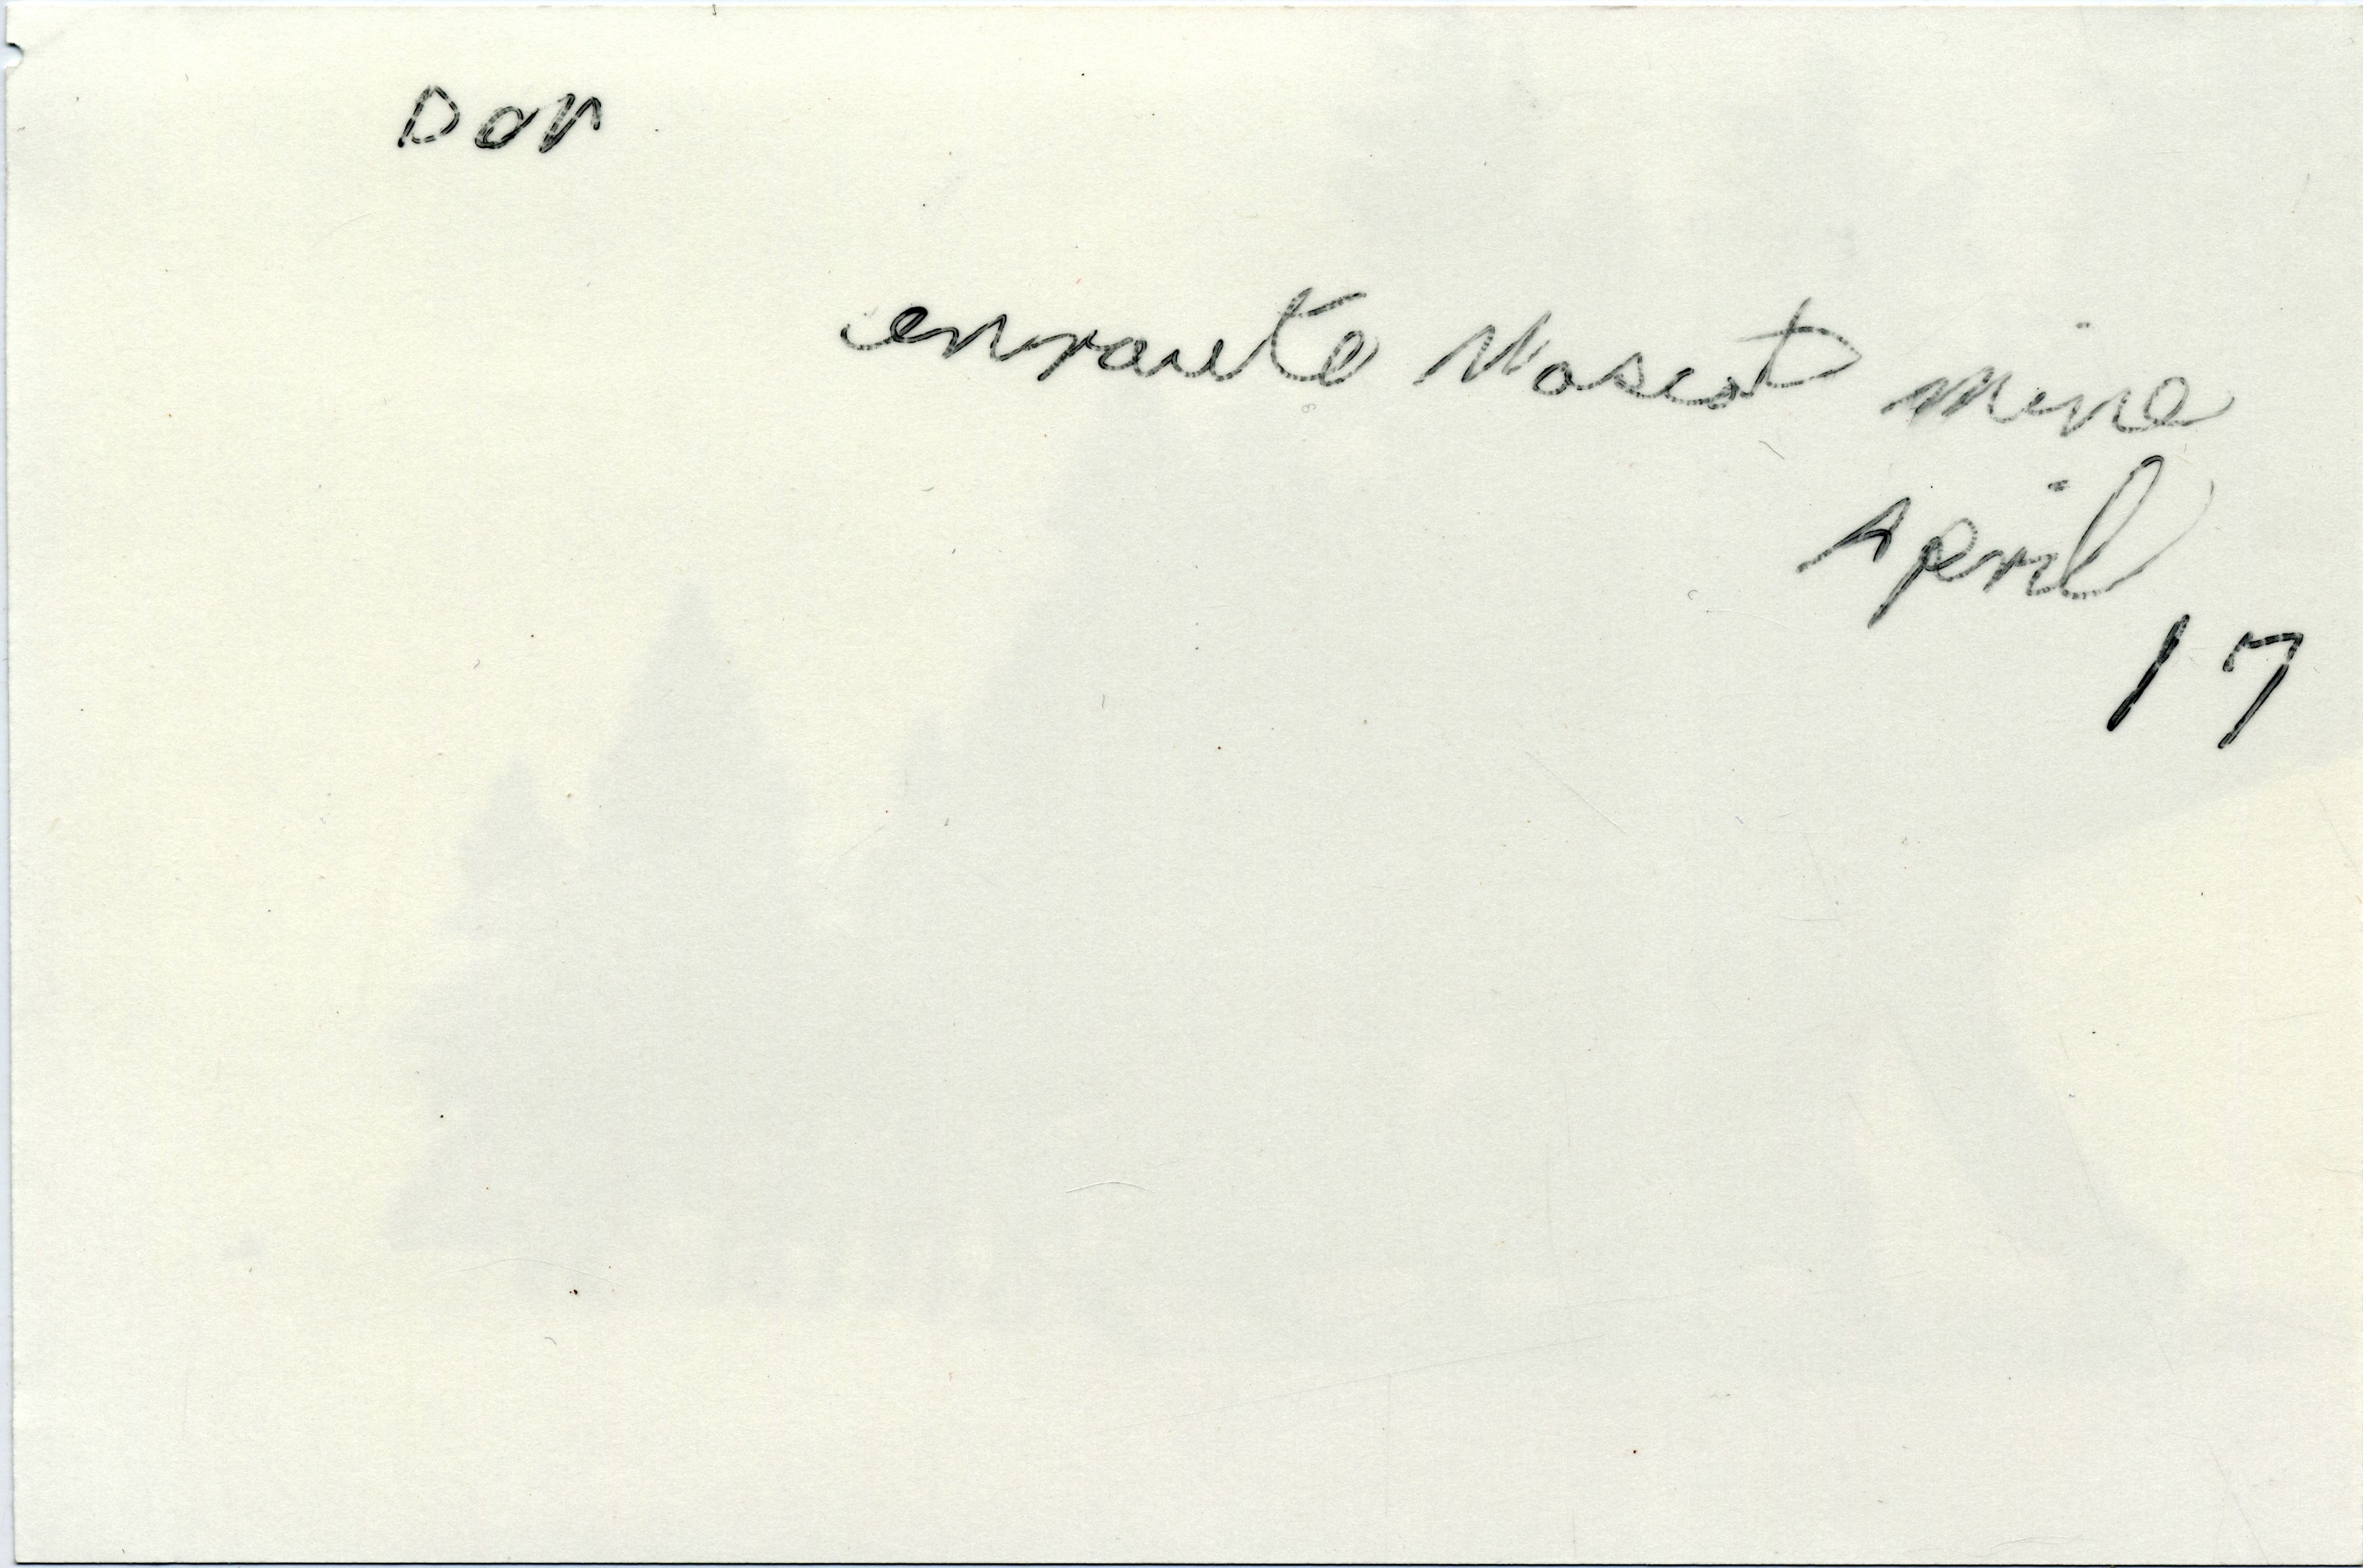 Don
enroute Mascot mine
April
17